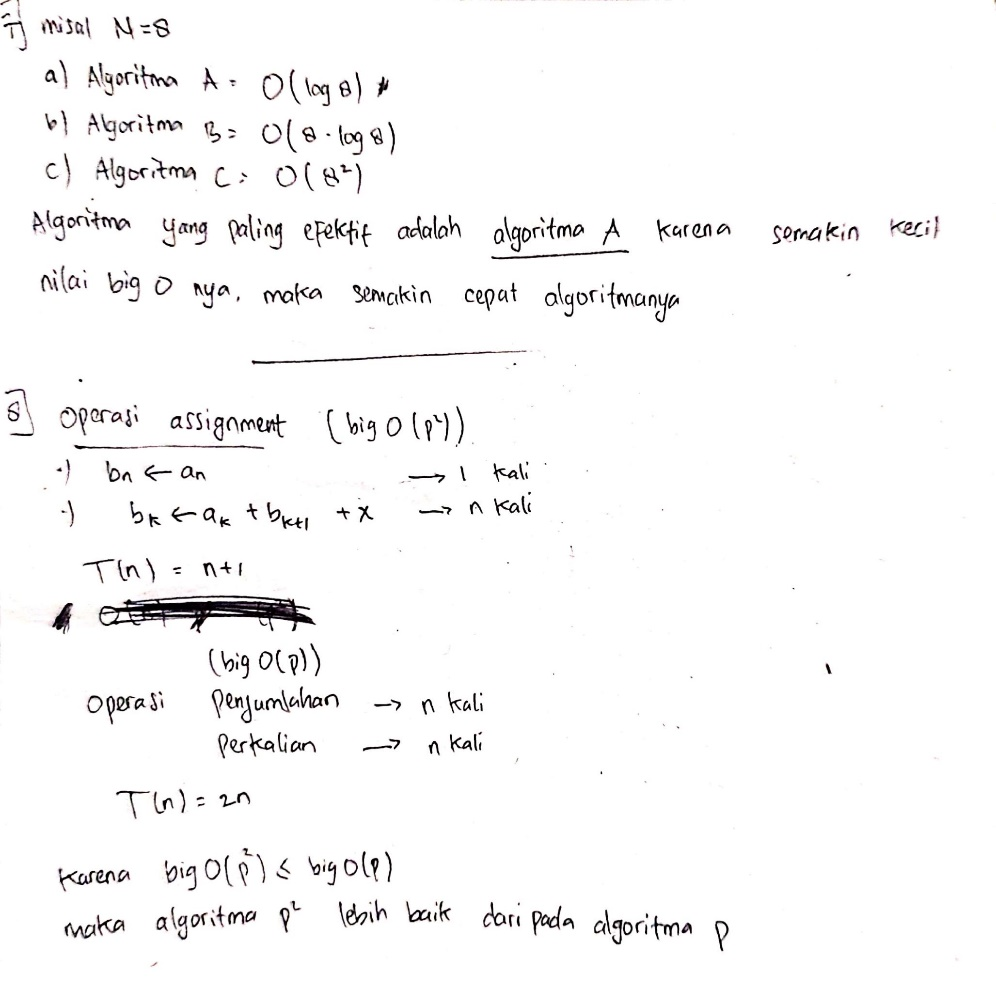 7] misal N=8
a) Algoritma A = O(log 8)
b) Algoritma B = O(8 · log 8)
c) Algoritma C = O(8²)
Algoritma yang paling efektif adalah algoritma A karena semakin kecil
nilai big O nya, maka semakin cepat algoritmanya
8] Operasi assignment (big O (p²))
·) bn ← an → 1 kali
·) bk ← ak + bk+1 + x → n kali
T(n) = n+1
(big O(p))
Operasi Penjumlahan → n kali
Perkalian → n kali
T(n) = 2n
Karena big O(p²) ≤ big O(p)
maka algoritma p² lebih baik dari pada algoritma p